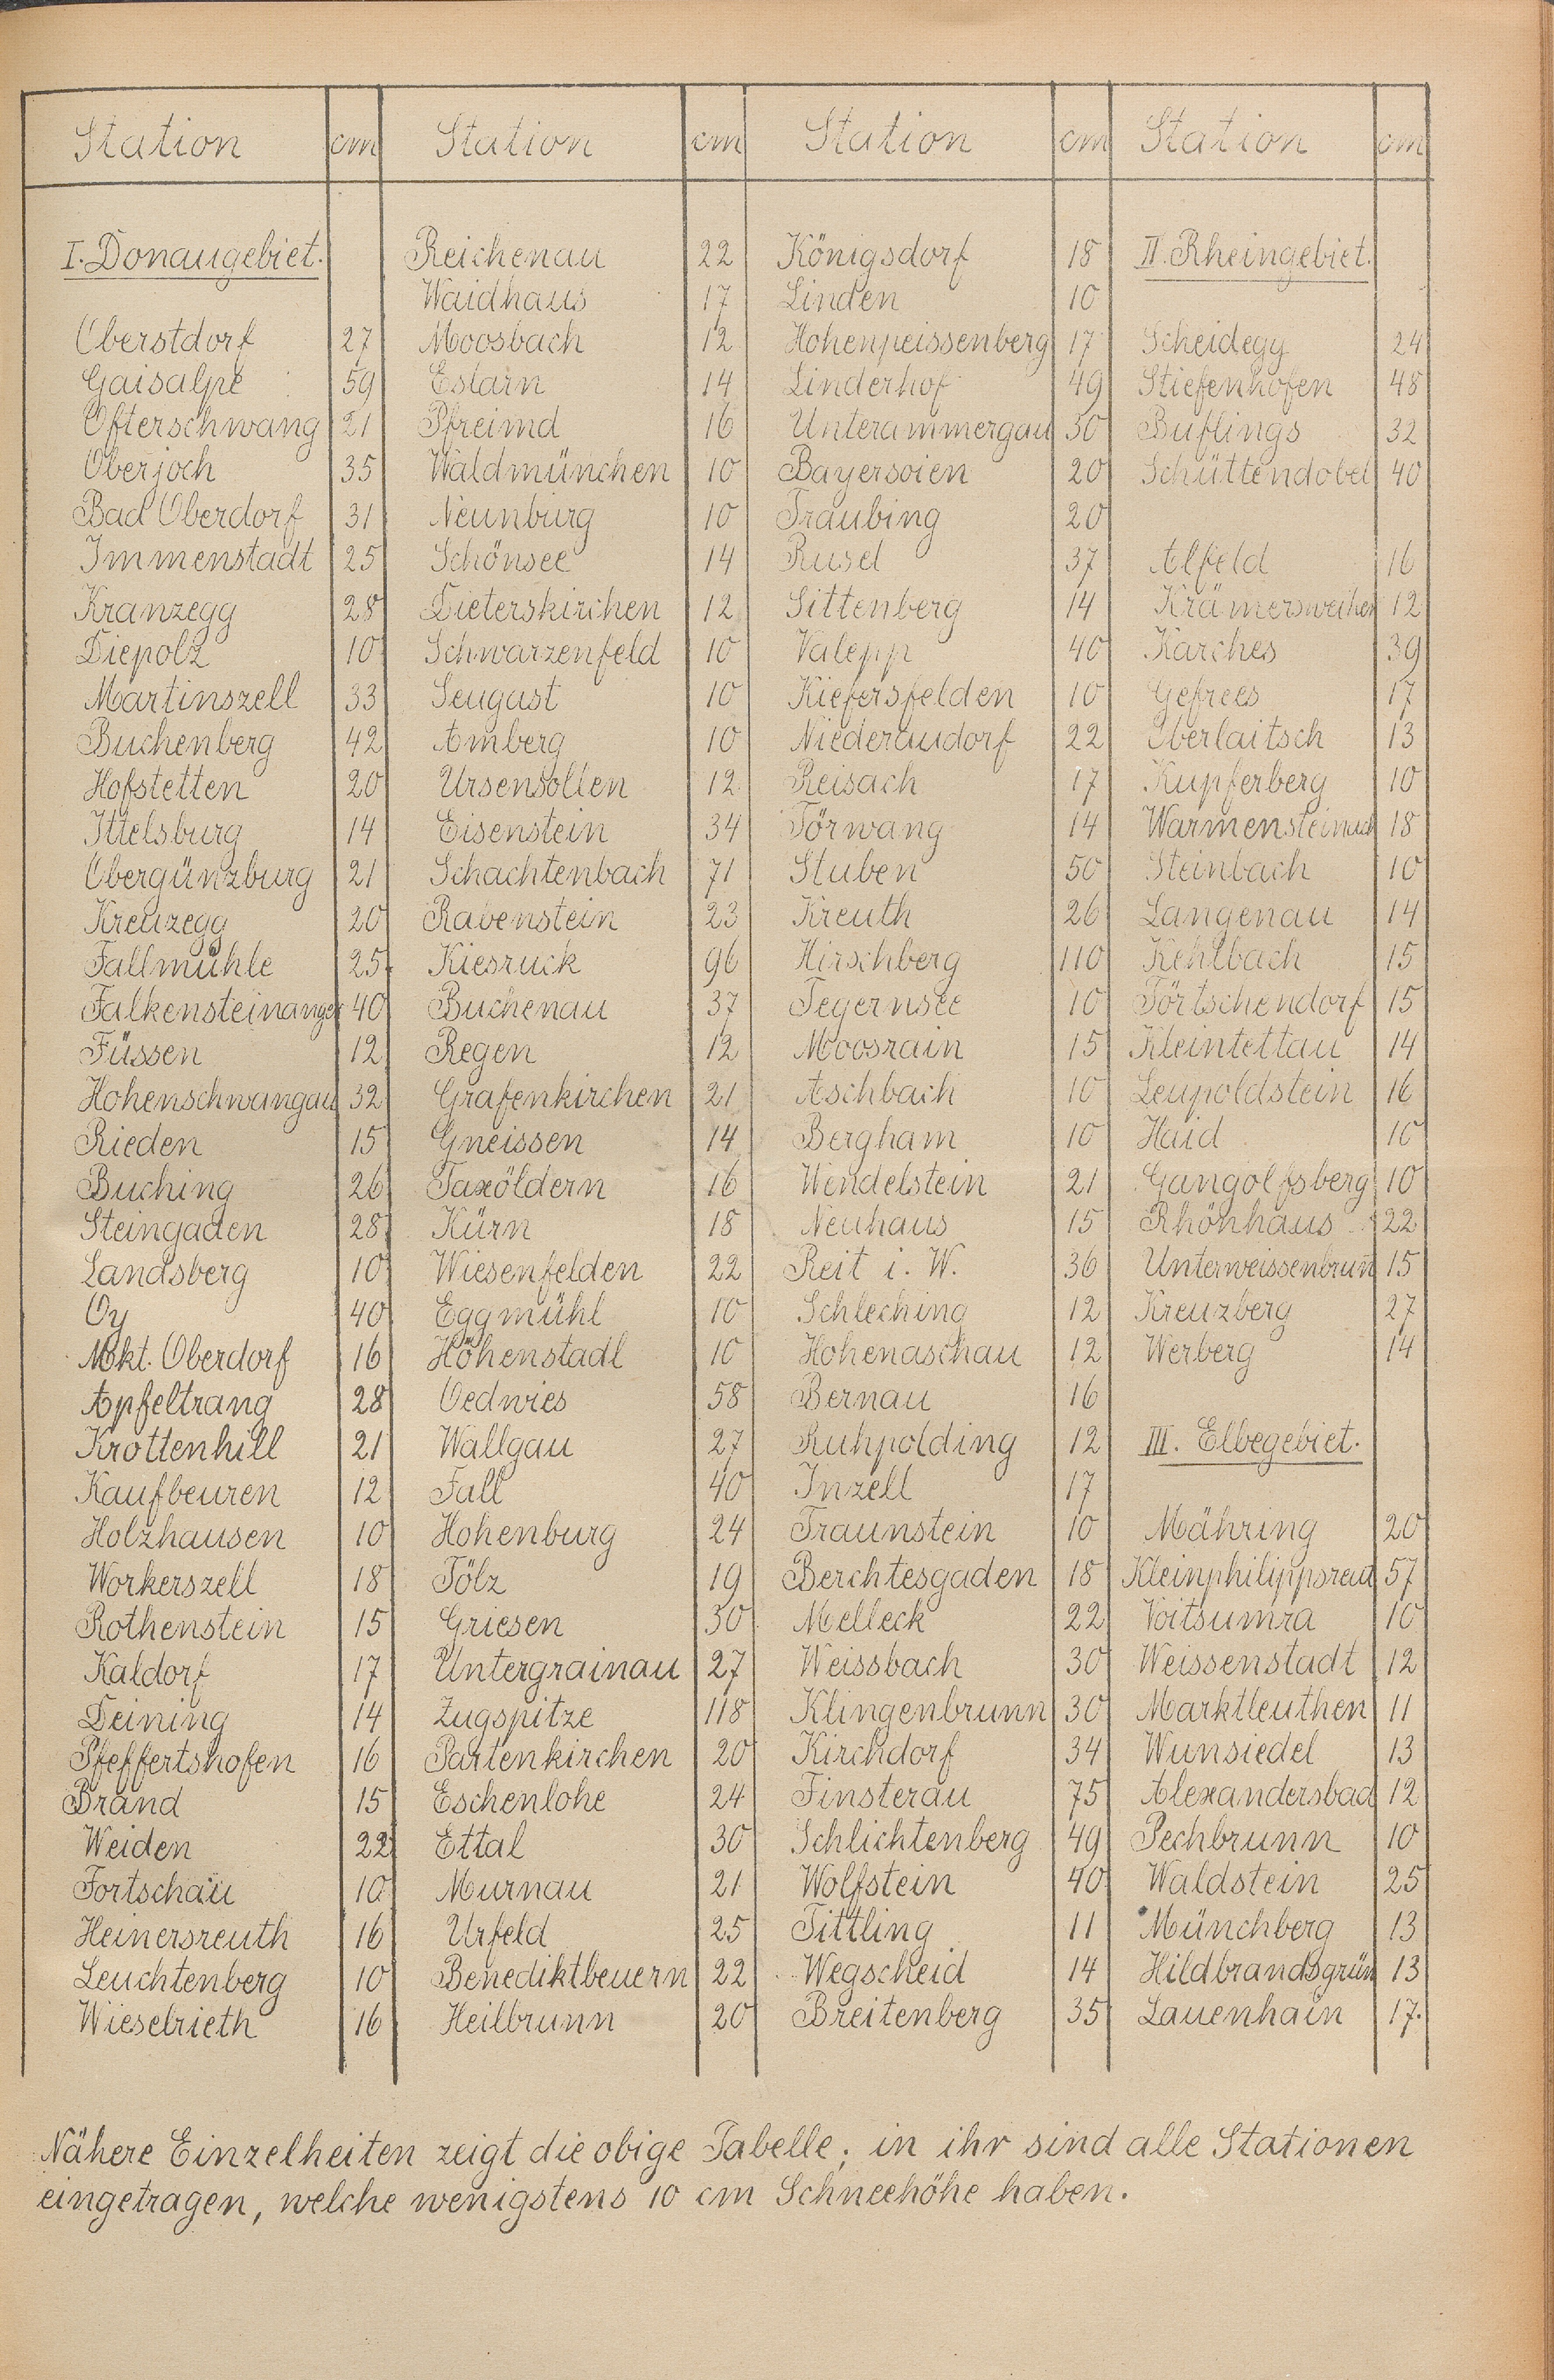 Station cm Station cm Station cm Station cm
I. Donaugebiet. Reichenau 22 Königsdorf 18 II. Rheingebiet.
Waidhaus 17 Linden 10
Oberstdorf 27 Moosbach 12 Hohenpeissenberg 17 Scheidegg 24
Gaisalpe 59 Eslarn 14 Linderhof 49 Stiefenhofen 48
Ofterschwang 21 Pfreimd 16 Unterammergau 30 Buflings 32
Oberjoch 35 Waldmünchen 10 Bayersoien 20 Schüttendobel 40
Bad Oberdorf 31 Neunburg 10 Traubing 20
Immenstadt 25 Schönsee 14 Rusel 37 Alfeld 16
Kranzegg 28 Dieterskirchen 12 Sittenberg 14 Krämersweiher 12
Diepolz 10 Schwarzenfeld 10 Valepp 40 Karches 39
Martinszell 33 Seugast 10 Kiefersfelden 10 Gefrees 17
Buchenberg 42 Amberg 10 Niederaudorf 22 Oberlaitsch 13
Hofstetten 20 Ursensollen 12 Reisach 17 Kupferberg 10
Ittelsburg 14 Eisenstein 34 Törwang 14 Warmensteinach 18
Obergünzburg 21 Schachtenbach 71 Stuben 50 Steinbach 10
Kreuzegg 20 Rabenstein 23 Kreuth 26 Langenau 14
Fallmühle 25 Kiesruck 96 Hirschberg 110 Kehlbach 15
Falkensteinanger 40 Buchenau 37 Tegernsee 10 Törtschendorf 15
Füssen 12 Regen 12 Moosrain 15 Kleintettau 14
Hohenschwangau 32 Grafenkirchen 21 Aschbach 10 Leupoldstein 16
Rieden 15 Gneissen 14 Bergham 10 Haid 10
Buching 26 Taxöldern 16 Wendelstein 21 Gangolfsberg 10
Steingaden 28 Kürn 18 Neuhaus 15 Rhönhaus 22
Landsberg 10 Wiesenfelden 22 Reit i. W. 36 Unterweissenbrun̄ 15
Oy 40 Eggmühl 10 Schleching 12 Kreuzberg 27
Mkt. Oberdorf 16 Höhenstadl 10 Hohenaschau 12 Werberg 14
Apfeltrang 28 Oedwies 58 Bernau 16
Krottenhill 21 Wallgau 27 Ruhpolding 12 III. Elbegebiet.
Kaufbeuren 12 Fall 40 Inzell 17
Holzhausen 10 Hohenburg 24 Traunstein 10 Mähring 20
Workerszell 18 Tölz 19 Berchtesgaden 18 Kleinphilippsreut 57
Rothenstein 15 Griesen 30 Melleck 22 Voitsumra 10
Kaldorf 17 Untergrainau 27 Weissbach 30 Weissenstadt 12
Deining 14 Zugspitze 118 Klingenbrunn 30 Marktleuthen 11
Pfeffertshofen 16 Partenkirchen 20 Kirchdorf 34 Wunsiedel 13
Brand 15 Eschenlohe 24 Finsterau 75 Alexandersbad 12
Weiden 22 Ettal 30 Schlichtenberg 49 Pechbrunn 10
Fortschau 10 Murnau 21 Wolfstein 40 Waldstein 25
Heinersreuth 16 Urfeld 25 Tittling 11 Münchberg 13
Leuchtenberg 10 Benediktbeuern 22 Wegscheid 14 Hildbrandsgrün 13
Wieselrieth 16 Heilbrunn 20 Breitenberg 35 Lauenhain 17.
Nähere Einzelheiten zeigt die obige Tabelle; in ihr sind alle Stationen
eingetragen, welche wenigstens 10 cm Schneehöhe haben.